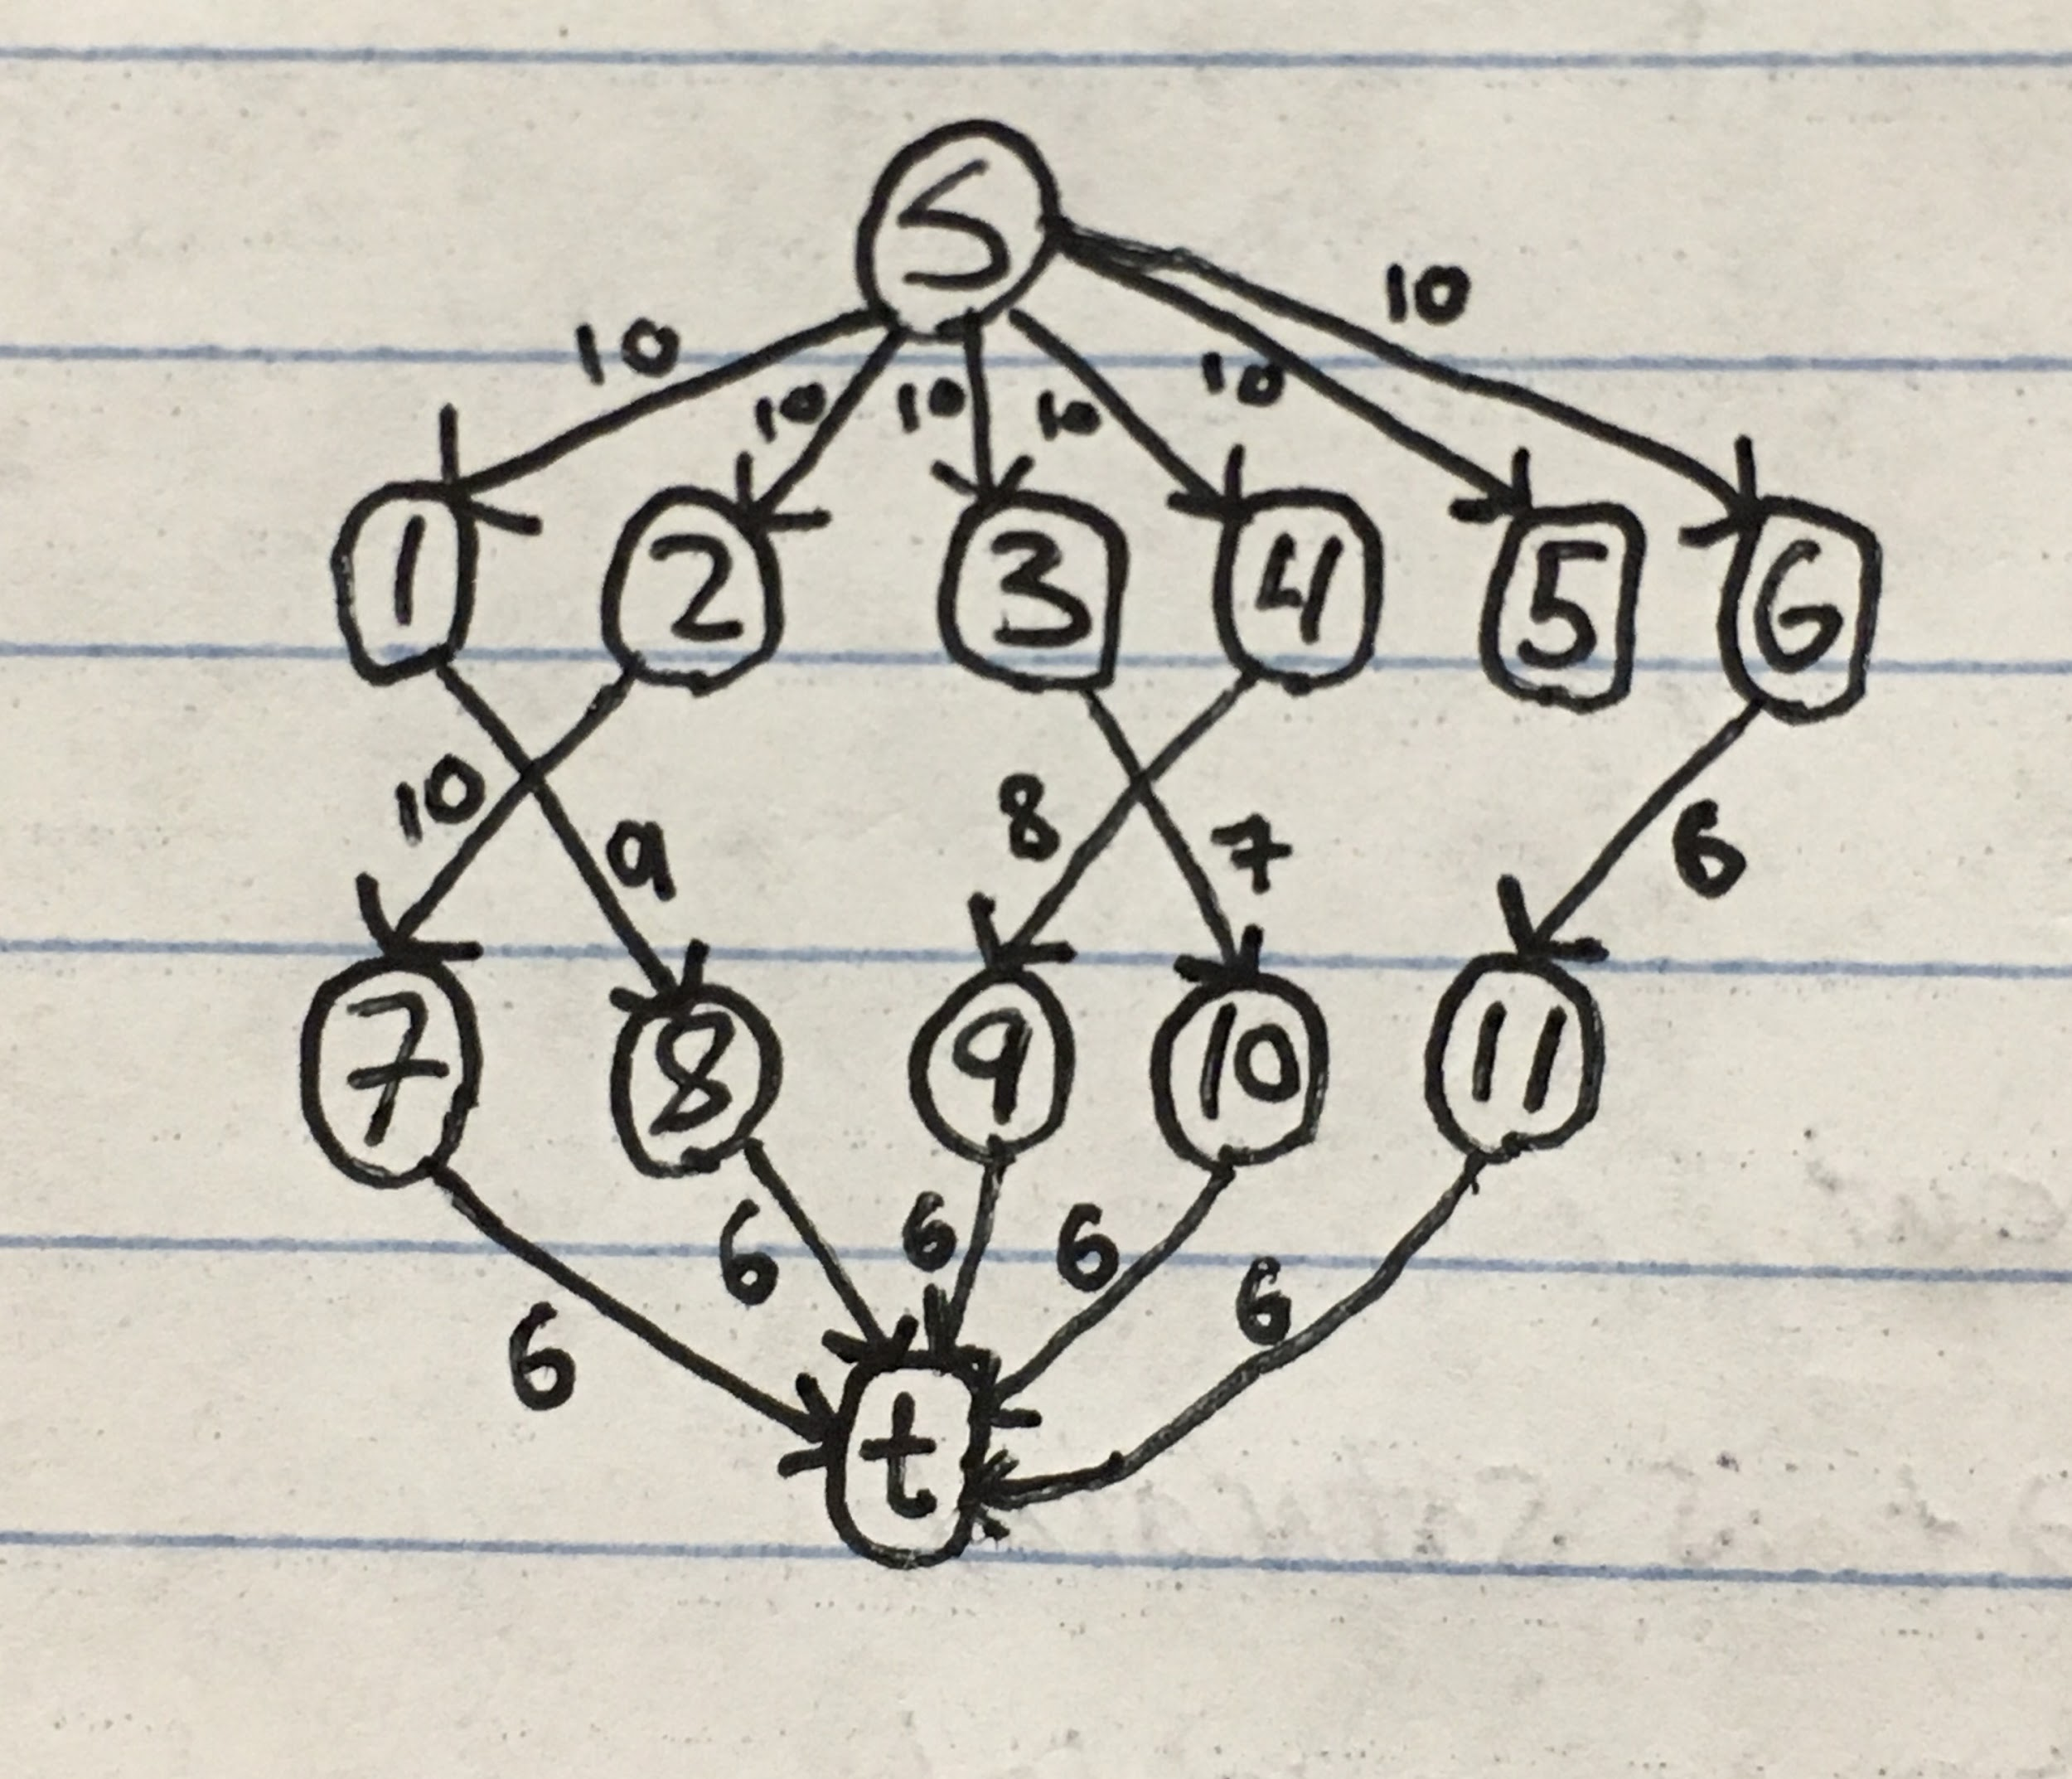 S
10
10
10 10 10 10
1 2 3 4 5 6
10 9 8 7 6
7 8 9 10 11
6 6 6 6 6
t